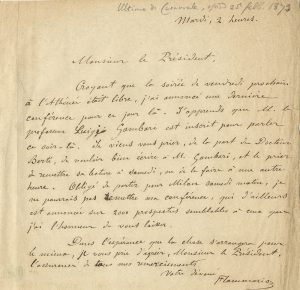 Ultimo di Carnevale, 25 feb. 1873
Mardi, 2 heures.
Monsieur le Président,
Croyant que la soirée de vendredi prochain
à l'Athénée était libre, j'ai annoncé une dernière
conférence pour ce jour là. J'apprends que M. le
professeur Luigi Gambari est inscrit pour parler
ce soir-là. Je viens vous prier, de la part du Docteur
Berti, de vouloir bien écrire à M. Gambari, et le prier
de remettre sa lecture à samedi, ou de le faire à une autre
heure. Obligé de partir pour Milan samedi matin, je
ne pourrais pas remettre ma conférence, qui d'ailleurs
est annoncée sur 2000 prospectus semblables à ceux que
j'ai l'honneur de vous
Dans l'espérance que la chose s'arrangera pour
le mieux, je vous prie d'agréer, Monsieur le Président,
l'assurance de tous mes remerciements.
Votre dévoué
Flammarion